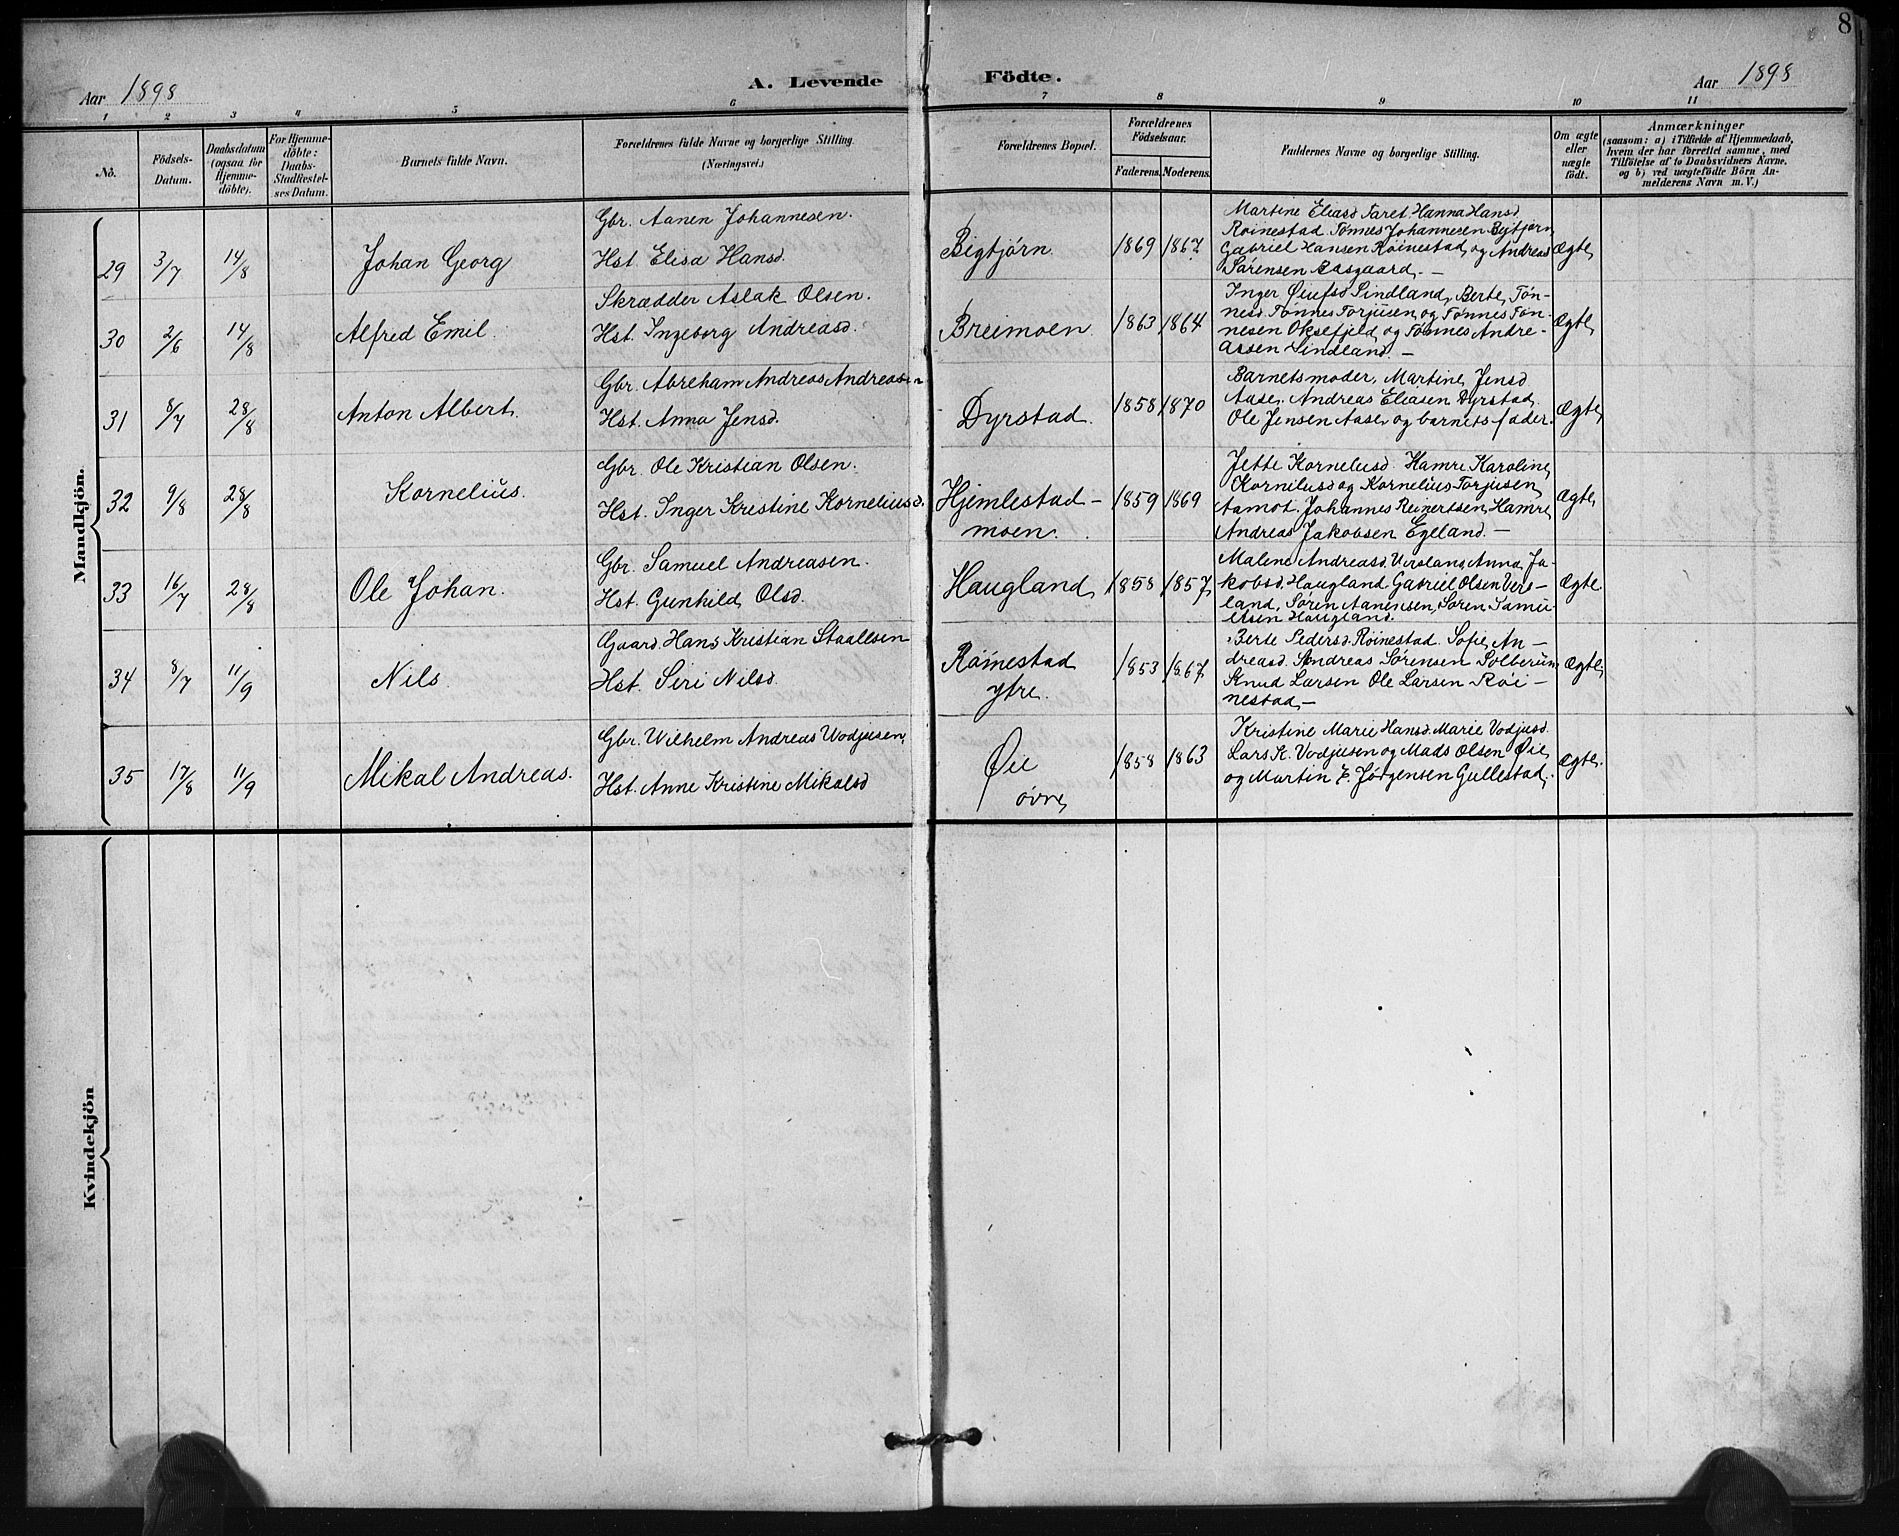 8
Aar 1898
A. Levende Födte.
Aar 1898
1 2 3 4 5 6 7 8 9 10 11
No.
Födsels-Datum.
Daabsdatum (ogsaa for Hjemmedöbte).
For Hjemmedöbte: Daabs-Stadfæstelses Datum.
Barnets fulde Navn.
Forældrenes fulde Navne og borgerlige Stilling. (Næringsvei.)
Forældrenes Bopæl.
Forældrenes Födselsaar.
Faderens. Moderens.
Faddernes Navne og borgerlige Stilling.
Om ægte eller uægte födt.
Anmærkninger
(saasom: a) i Tilfælde af Hjemmedaab,
hvem der har forrettet samme, med
Tilföielse af to Daabsvidners Navne.
og b) ved uægtefödte Börn An-
melderens Navn m. V.)
Mandkjön.
29 3/7 14/8 Johan Georg
Gbr. Aanen Johannesen.
Hst. Elisa Hansd.
Bigtjörn. 1869 1867
Martine Eliasd Faret Hanna Hansd
Roinestad Tønnes Johannesen Bigtjørn
Gabriel Hansen Röinestad, og Andreas
Sørensen Aasgaard. —
Ægte
30 2/6 14/8 Alfred Emil.
Skrædder Aslak Olsen.
Hst. Ingeborg Andreasd.
Breimoen. 1863 1864
Inger Sindland, Berte Tøn-
nesd Tønnes Torjusen og Tønnes Tøn-
nesen Oksefjeld, og Tønnes Andre-
assen Sindland. —
Ægte
31 8/7 28/8 Anton Albert.
Gbr. Abreham Andreas Andreasen
Hst. Anna Jensd.
Dyrstad. 1858 1870
Barnetsmoder, Martine Jensd
Aase. Andreas Eliasen Dyrstad.
Ole Jensen Aase, og barnets fader.
Ægte
32 9/8 28/8 Kornelius.
Gbr. Ole Kristian Olsen.
Hst. Inger Kristine Korneliusd.
Hjemlestad-
moen. 1859 1869
Jette Kornelusd. Hamre Karoline
Kornilusd og Kornelius Torjusen,
Aamot. Johannes Reinertsen, Hamre,
Andreas Jakobsen Egeland. —
Ægte
33 16/7 28/8 Ole Johan.
Gbr. Samuel Andreasen.
Hst. Gunhild, Olsd.
Haugland, 1858 1857
Malene Andreasd. Versland, Anna Ja-
kobsd. Haugland, Gabriel Olsen Vers-
land, Søren Aanensen, Søren Samu-
elsen Haugland.
Ægte.
34 8/7 11/9 Nils.
Gaard. Hans Kristian Staallsen
Hst. Siri Nilsd.
Röinestad
ytre. 1853 1867
Berte Pedersd. Röinestad. Sofie An-
dreasd. Andreas Sørensen
Knud Larsen Ole Larsen Röi-
nestad. —
Ægte
35 17/8 11/9 Mikal Andreas.
Gbr. Wilhelm Andreas Vodjusen.
Hst. Anne Kristine Mikalsd
Øie
øvre. 1858 1863
Kristine Marie Hansd. Marie Vodjusd.
Lars K. Vodjusen og Mads Olsen Øie
og Martin E. Jørgensen Gullestad.
Ægte.
Kvindekjön